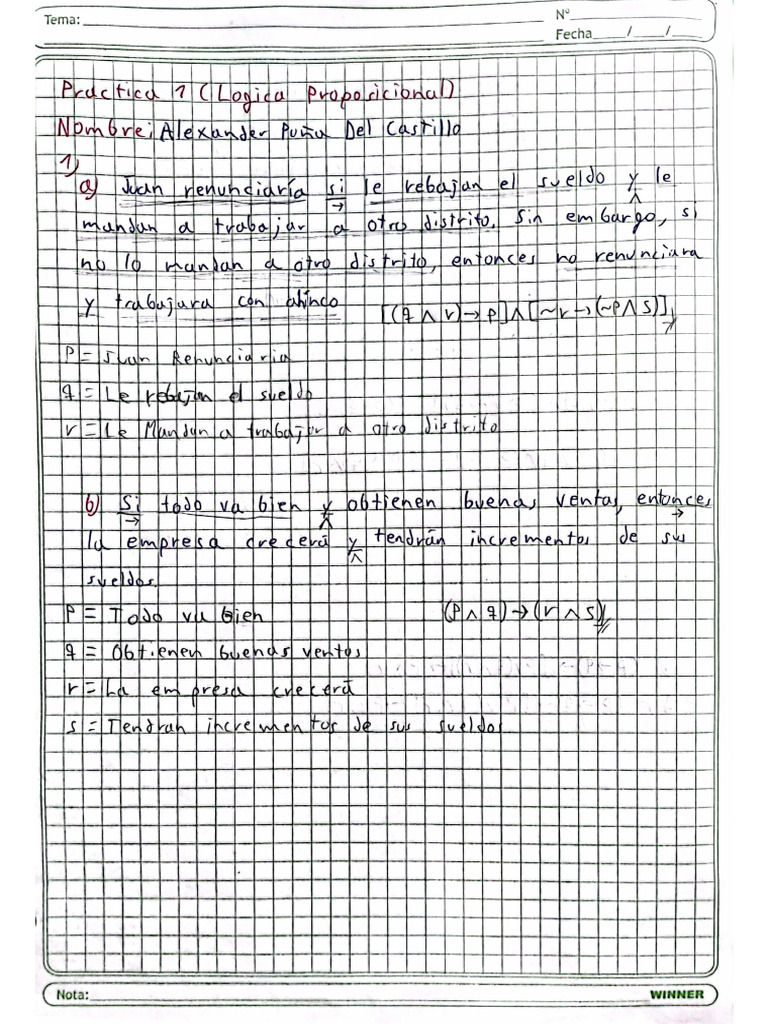 Tema:
Nº
Fecha / /
Practica 1 (Logica Proposicional)
Nombre: Alexander Puña Del Castillo
1)
a) Juan renunciaría si le rebajan el sueldo y le
→ ∧
mandan a trabajar a otro distrito. Sin embargo, si
no lo mandan a otro distrito, entonces no renunciara
y trabajara con ahínco
[(q ∧ r) → p] ∧ [~r → (~p ∧ s)]
P = Juan Renunciaria
q = Le rebajan el sueldo
r = Le Mandan a trabajar a otro distrito
b) Si todo va bien y obtienen buenas ventas, entonces
→ ∧ →
la empresa crecerá y tendrán incrementos de sus
∧
sueldos.
P = Todo va bien
(p ∧ q) → (r ∧ s)
q = Obtienen buenas ventas
r = La empresa crecerá
s = Tendran incrementos de sus sueldos
Nota:
WINNER